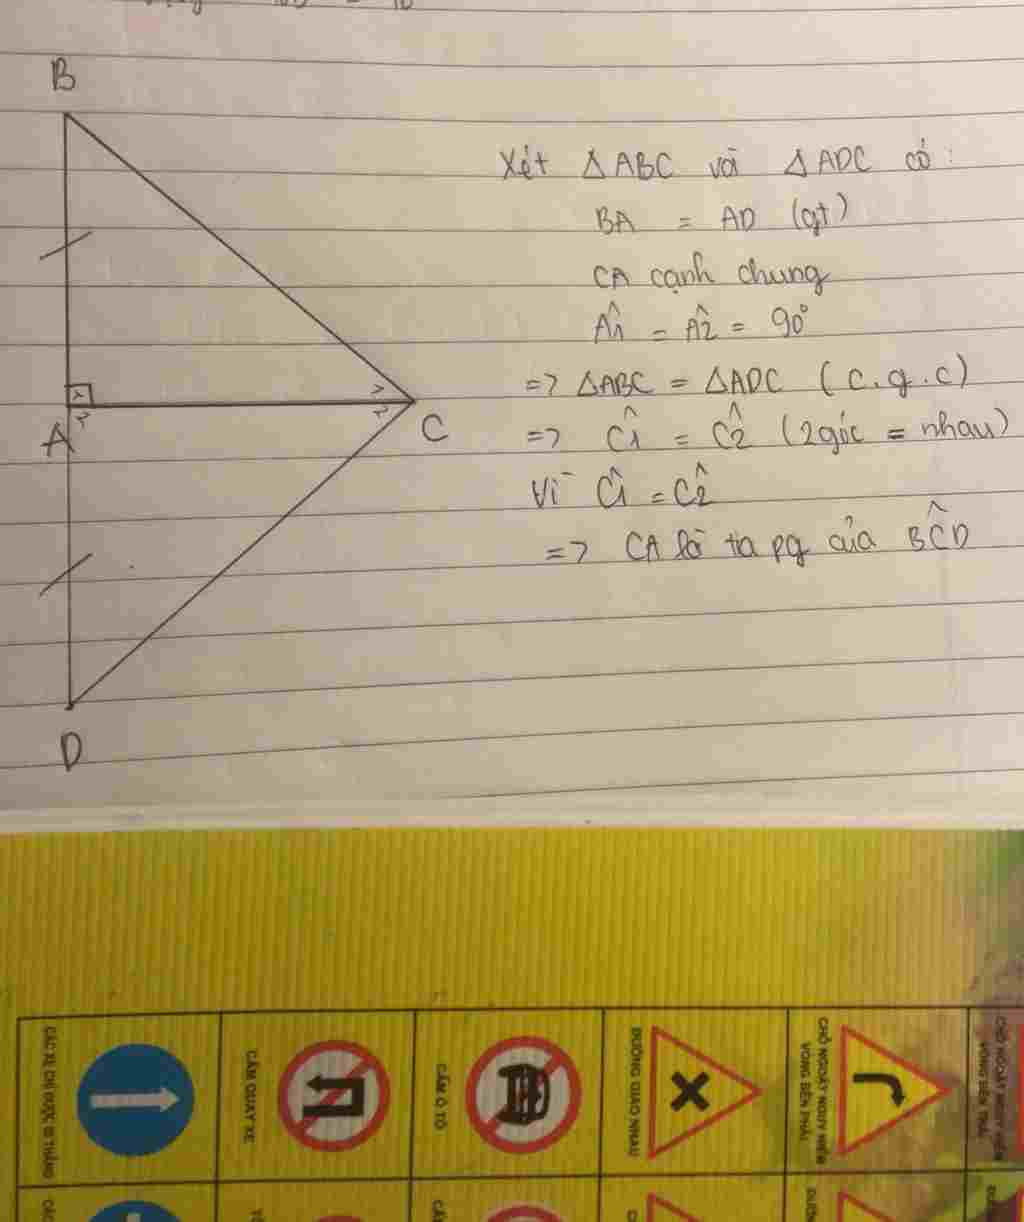 B
Xét ΔABC và ΔADC có:
BA = AD (gt)
CA cạnh chung
Â1 = Â2 = 90°
=> ΔABC = ΔADC (c.g.c)
=> Ĉ1 = Ĉ2 (2 góc = nhau)
Vì Ĉ1 = Ĉ2
=> CA là tia pg của BĈD
1
2
1
2
A
C
D
CÁC XE CHỈ ĐƯỢC ĐI THẲNG
CẤM QUAY XE
CẤM Ô TÔ
ĐƯỜNG GIAO NHAU
CHỖ NGOẶT NGUY HIỂM
VÒNG BÊN PHẢI
CHỖ NGOẶT NGUY HIỂM
VÒNG BÊN TRÁI